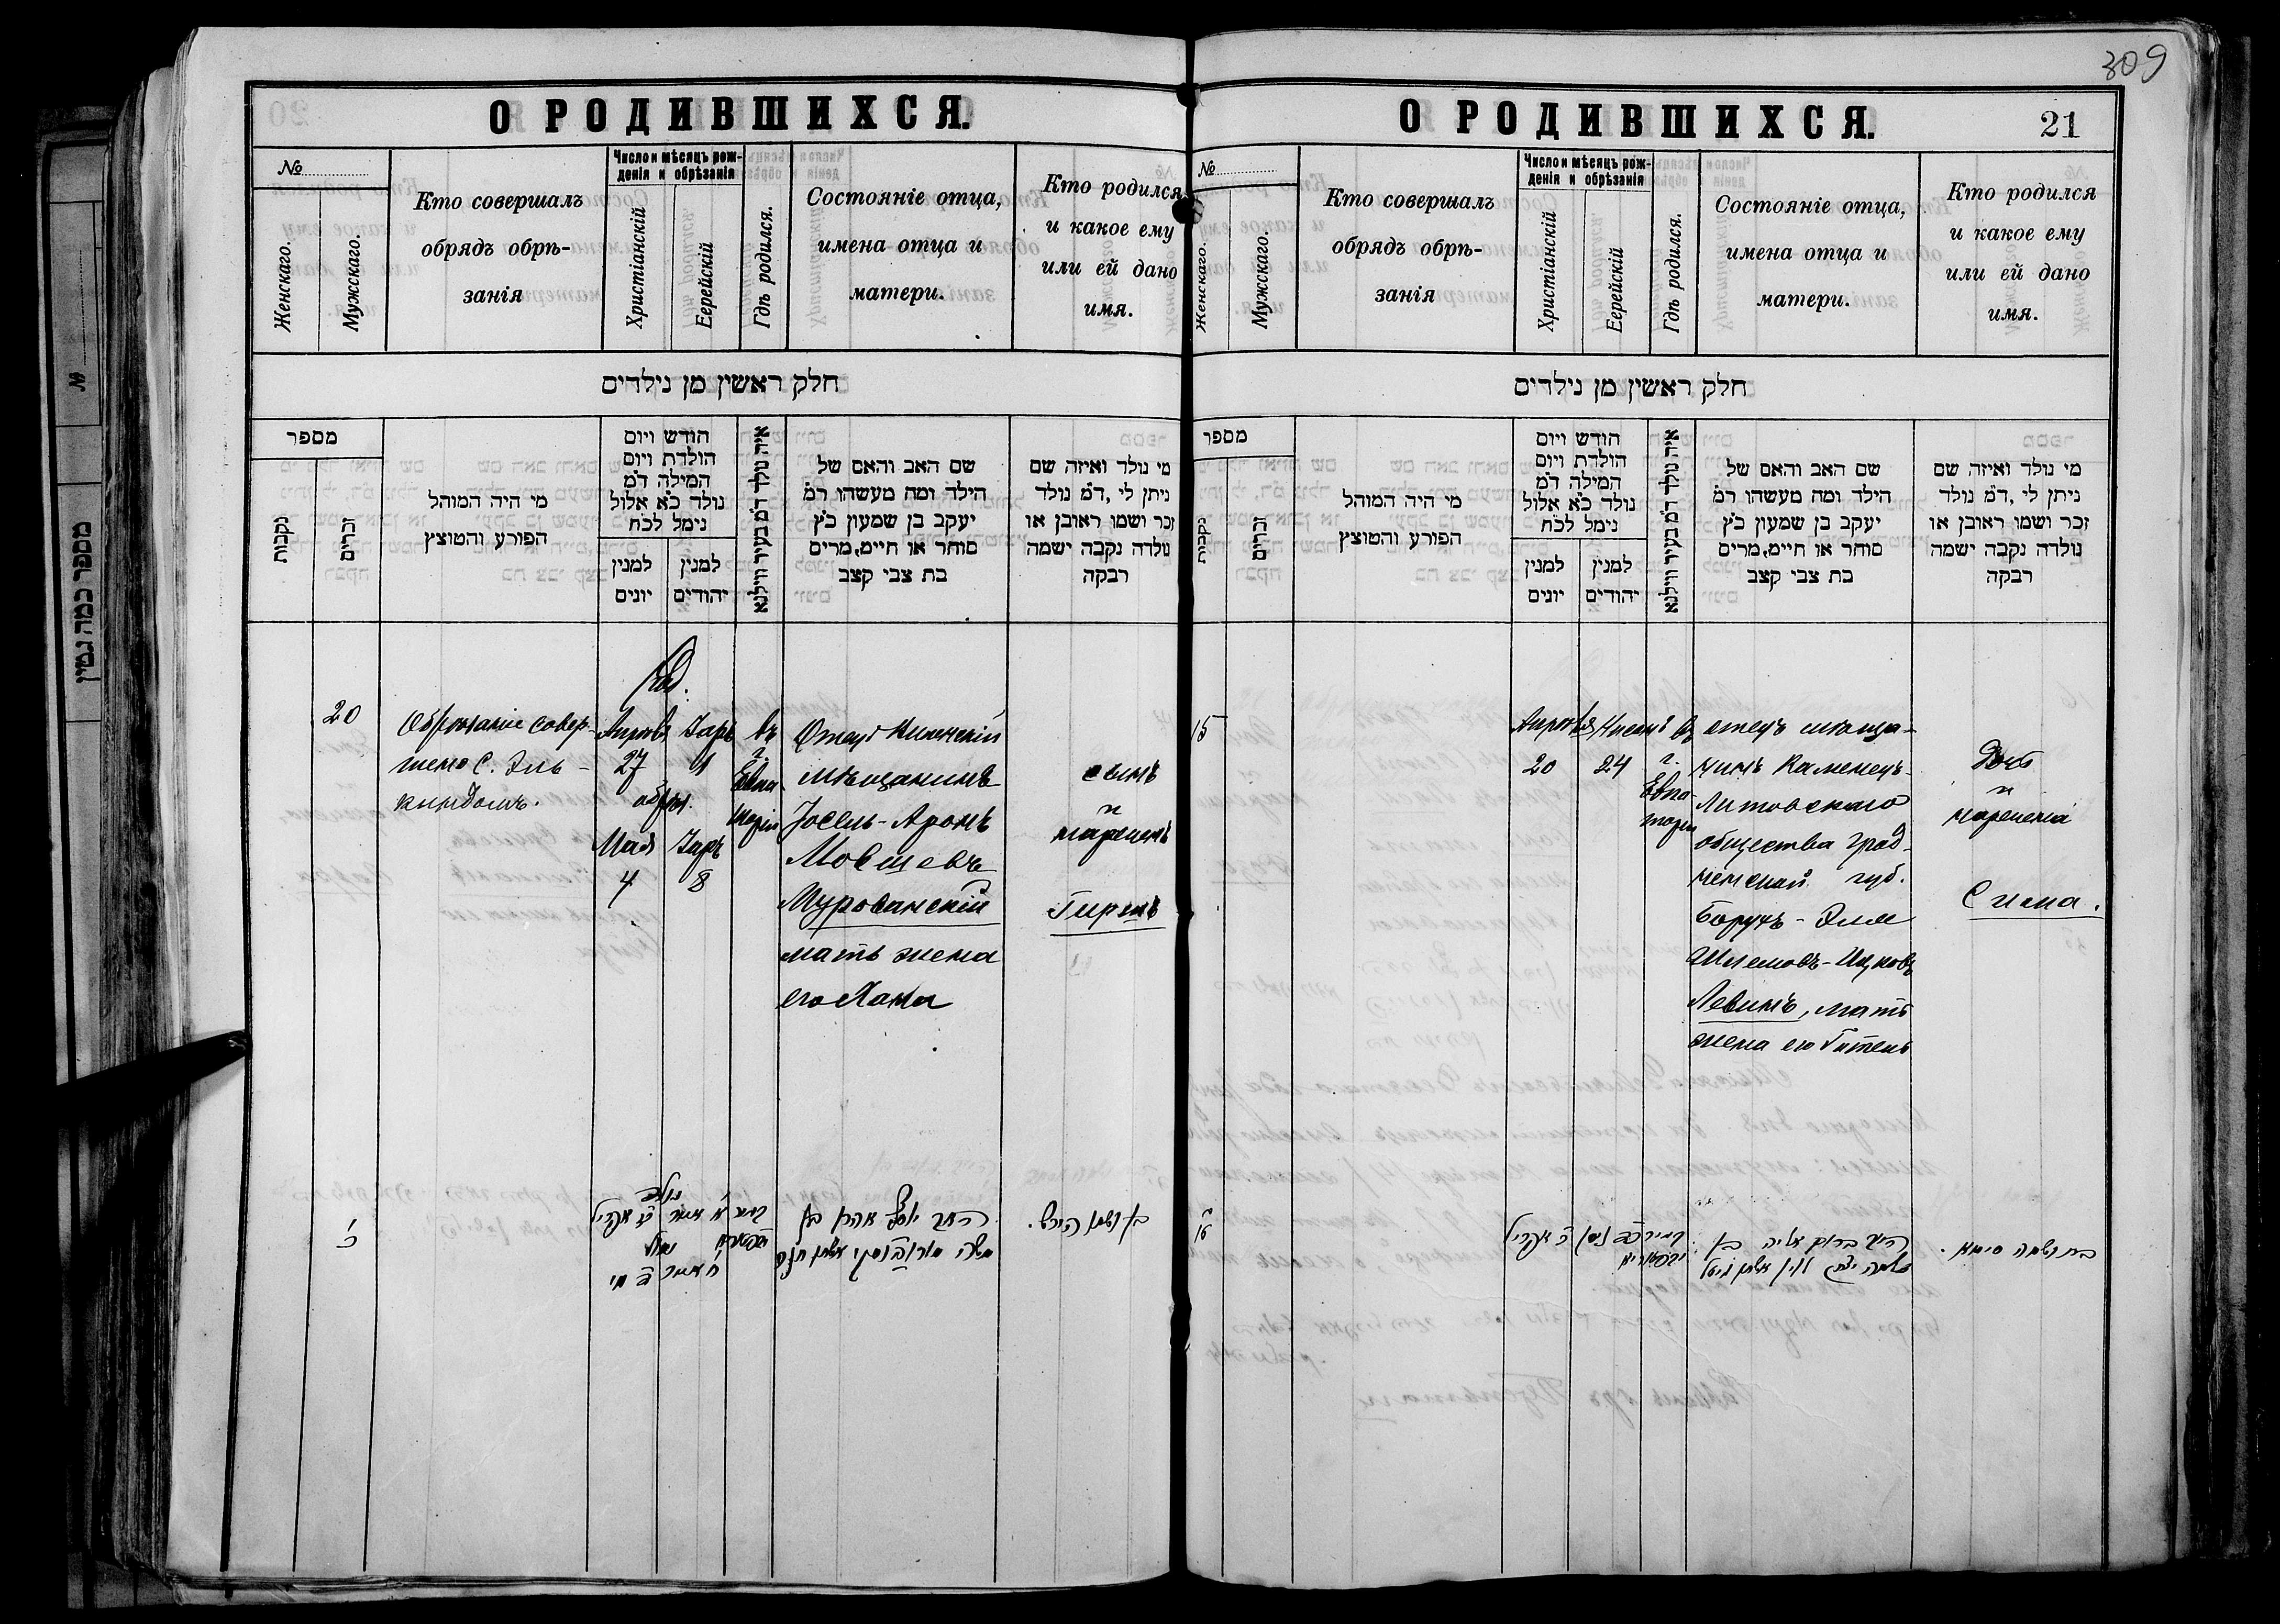 309
О РОДИВШИХСЯ.
№
Женскаго.
Мужскаго.
Кто совершалъ
обрядъ обрѣ-
занія
Число и мѣсяцъ рож-
денія и обрѣзанія
Христіанскій
Еерейскій
Гдѣ родился.
Состояніе отца,
имена отца и
матери.
Кто родился
и какое ему
или ей дано
имя.
חלק ראשין מן נילדים
מספר
נקבות
זכרים
מי היה המוהל
הפורע והטוצץ
חודש ויום
הולדת ויום
המילה דמ
נולד כא אלול
נימל לכח
למנין
יונים
למנין
יהודים
איה נולד דמ בעיר ווילנא
שם האב והאם של
הילד ומה מעשהו רמ
יעקב בן שמעון כץ
סוחר או חיים,מרים
בת צבי קצב
מי נולד ואיזה שם
ניתן לי ,דמ נולד
זכר ושמו ראובן או
נולדה נקבה ישמה
רבקה
20
Обрѣзаніе совер-
шено С. Эль-
киндомъ.
Род.
Апрѣля
27
обрѣз.
Мая
4
Іаръ
1
Іаръ
8
въ
г.
Евпа-
торіи
Отецъ
мѣщанинъ
Іосель-Аронъ
Мовшевъ
Мурованскій
мать жена
его Хана
сынъ
и
нареченъ
Гиршъ
האב יוסף אהרן בן
משה מוראוואנסקי אשתו חנה
בן ושמו הירש.
О РОДИВШИХСЯ.
21
№
Женскаго.
Мужскаго.
Кто совершалъ
обрядъ обрѣ-
занія
Число и мѣсяцъ рож-
денія и обрѣзанія
Христіанскій
Еерейскій
Гдѣ родился.
Состояніе отца,
имена отца и
матери.
Кто родился
и какое ему
или ей дано
имя.
חלק ראשין מן נילדים
מספר
נקבות
זכרים
מי היה המוהל
הפורע והטוצץ
חודש ויום
הולדת ויום
המילה דמ
נולד כא אלול
נימל לכח
למנין
יונים
למנין
יהודים
איה נולד דמ בעיר ווילנא
שם האב והאם של
הילד ומה מעשהו רמ
יעקב בן שמעון כץ
סוחר או חיים,מרים
בת צבי קצב
מי נולד ואיזה שם
ניתן לי ,דמ נולד
זכר ושמו ראובן או
נולדה נקבה ישמה
רבקה
15
Апрѣля
20
Нисанъ
24
въ
г.
Евпа-
торіи
отецъ мѣща-
нинъ Каменецъ-
Литовскаго
общества Грод-
ненской губ.
Борухъ-Элле
Шлемовъ-Ицковъ
Левинъ, мать
жена его Гитель
Дочь
и
наречена
Сима.
האב ברוך אליה בן
שלמה יצחק לוין אשתו גיטל
בת ושמה סימא.